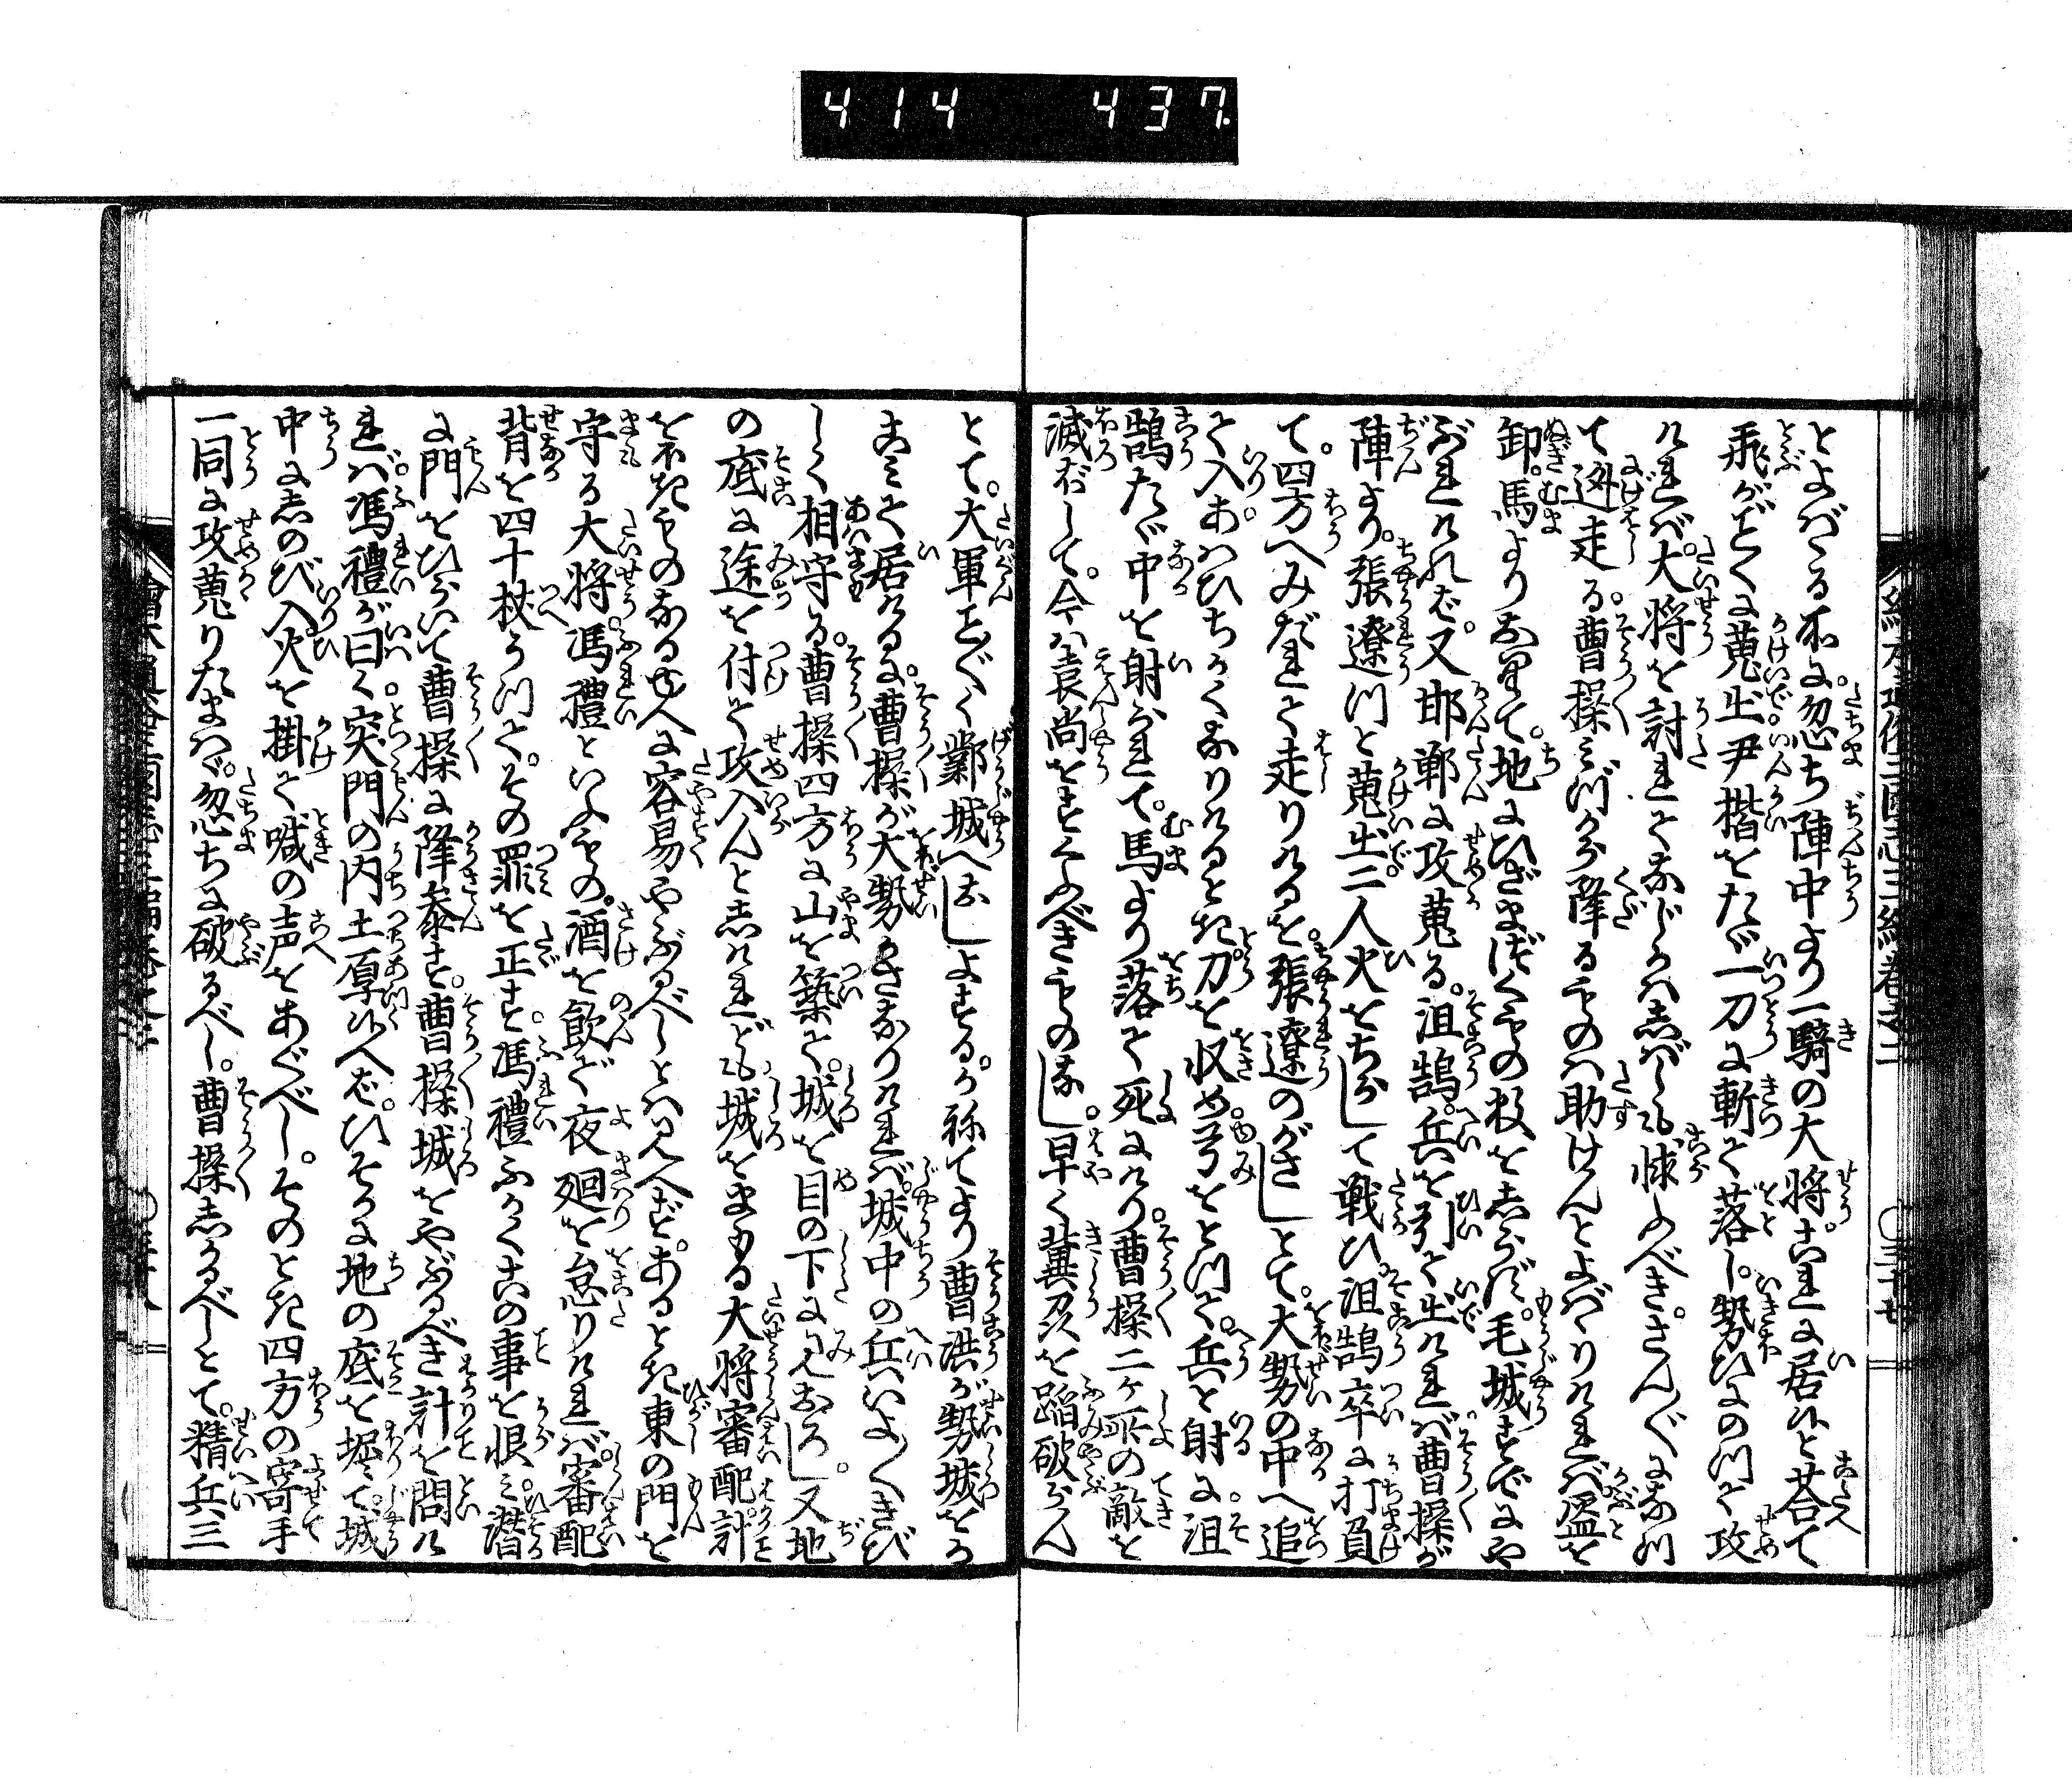 414 437
とよばゝる所に。忽ち陣中より一騎の大将。これに居候と荅て
飛がごとくに蒐出尹楷をたゞ一刀に斬て落し。勢ひにのつて攻
ければ。大将を討れてなじかは志ばしも悚ふべき。さん〴〵になつ
て迯走る。曹操みづから降るものは助けんとよばゝりければ。盔を
卸。馬より下りて。地にひざまづくもの数を志らず。毛城すでにや
ぶれければ。又邯鄲に攻蒐る。沮鵠。兵を引て出ければ曹操が
陣より。張遼つと蒐出二人火をちらして戦ひ。沮鵠卒に打負
て。四方へみだれて走りけるを。張遼のがさじとて。大勢の中へ追
て入。あはひちかくなりけるとき。刀を収め。弓をとつて。兵と射に沮
鵠たゞ中を射られて。馬より落て死にけり。曹操二ケ所の敵を
滅ぼして。今は袁尚をすくふべきものなし。早く冀州を蹈破らん
とて。大軍こと〴〵く鄴城へおしよする。かねてより曹洪が勢城をか
こみて居けるに。曹操が大勢かさなりければ。城中の兵いよ〳〵きび
しく相守る。曹操四方に山を築て。城を目の下に見おろし。又地
の底に途を付て攻入んと志けれども城をまもる大将審配。計
を尽きものなるゆへに容易やぶるべしとは見へず。あるとき東の門を
守る大将。馮禮といふもの。酒を飲で夜廻を怠りければ。審配
背を四十杖うつて。その罪を正す。馮禮ふかくこの事を恨み潜
に門をひらいて曹操に降參す。曹操城をやぶるべき計を問け
れば。馮禮が曰く突門の内土厚候へば。ひそかに地の底を堀て。城
中に志のび入。火を掛て喊の声をあぐべし。そのとき四方の寄手
一同に攻蒐りたまはゞ。忽ちに破るべし。曹操志かるべしとて。精兵三